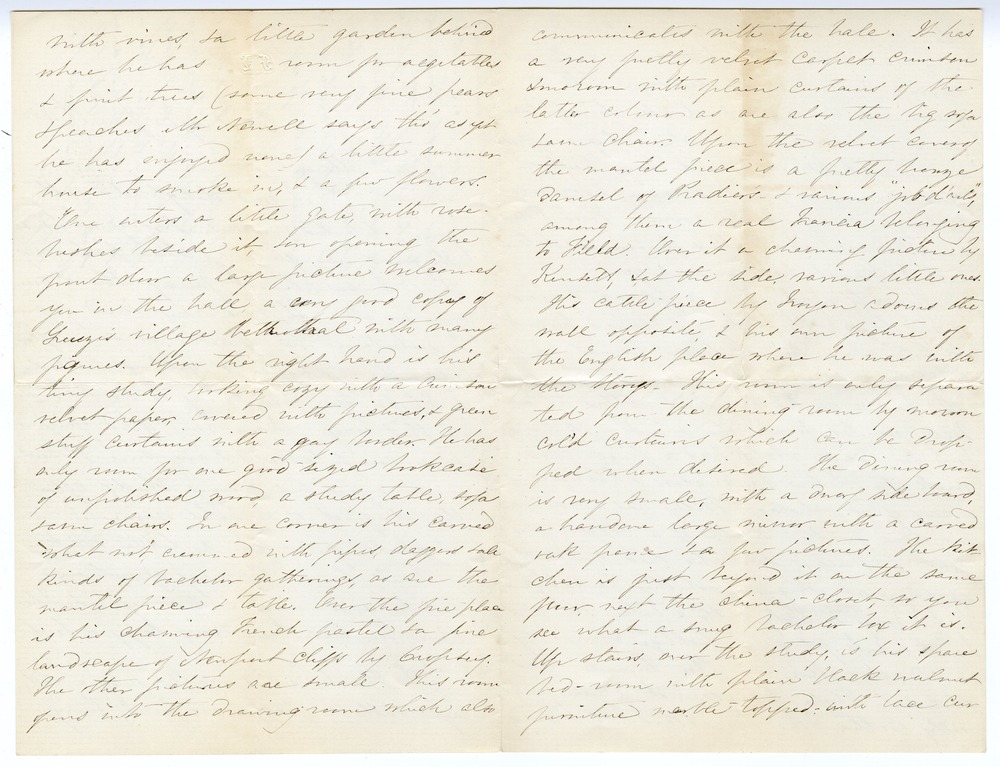 with vines, & a little garden behind
where he has room for vegetables
& fruit trees (some very fine pears
& peaches Mr Newell says tho' as yet
he has enjoyed none) a little summer
house to smoke in, & a few flowers.
One enters a little gate, with rose-
bushes beside it, & on opening the
front door a large picture welcomes
you in the hall a very good copy of
Greuze's village betrothal with many
figures. Upon the right hand is his
tiny study, looking cozy with a crimson
velvet paper, covered with pictures, & green
stuff curtains with a gay border. He has
only room for one good-sized bookcase
of unpolished wood, a study table, sofa
& arm chairs. In one corner is his carved
what not crammed with pipes, daggers & all
kinds of bachelor gatherings, as are the
mantel piece & table. Over the fire place
is his charming French pastel & a fine
landscape of Newport cliffs by Cropsey.
The other pictures are small. This room
opens into the drawing room which also
communicates with the hale. It has
a very pretty velvet carpet crimson
& maroon with plain curtains of the
latter colour as are also the big sofa
& arm chair. Upon the velvet covered
the mantel piece is a pretty bronze
Damsel of Pradier's & various "
among them a real Francia belonging
to Field. Over it a charming picture by
Kensett, & at the side, various little ones.
His cattle piece by Troyon adorns the
wall opposite & his own picture of
the English place where he was with
the Storys. This room is only separa
ted from the dining room by maroon
col'd curtains which can be drop-
ped when desired. The dining room
is very small, with a dwarf side board,
a handsome large mirror with a carved
oak frame & a few pictures. The kit
chen is just beyond it on the same
floor, next the china-closet, so you
see what a snug bachelor box it is.
Up stairs, over the study, is his spare
bed-room with plain black walnut
furniture marble topped, with lace cur